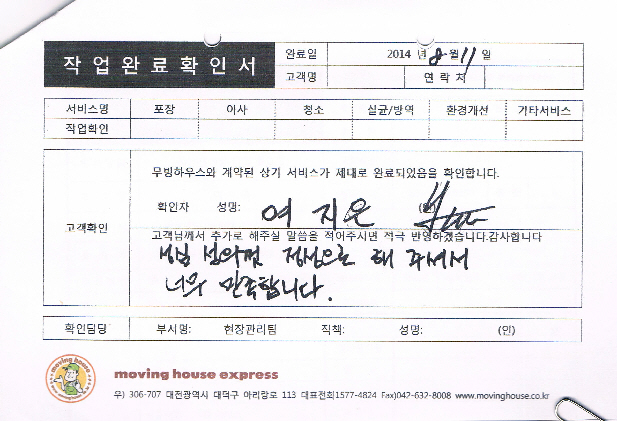 작업완료확인서
완료일 2014 년 8 월 11 일
고객명 연락처
서비스명 포장 이사 청소 살균/방역 환경개선 기타서비스
작업확인
무빙하우스와 계약된 상기 서비스가 제대로 완료되었음을 확인합니다.
확인자 성명: 여지은
고객확인
고객님께서 추가로 해주실 말씀을 적어주시면 적극 반영하겠습니다.감사합니다
성심 성의껏 정성으로 해 주셔서
너무 만족합니다.
확인담당 부서명: 현장관리팀 직책: 성명: (인)
moving house
moving house express
우) 306-707 대전광역시 대덕구 아리랑로 113 대표전화1577-4824 Fax)042-632-8008 www.movinghouse.co.kr